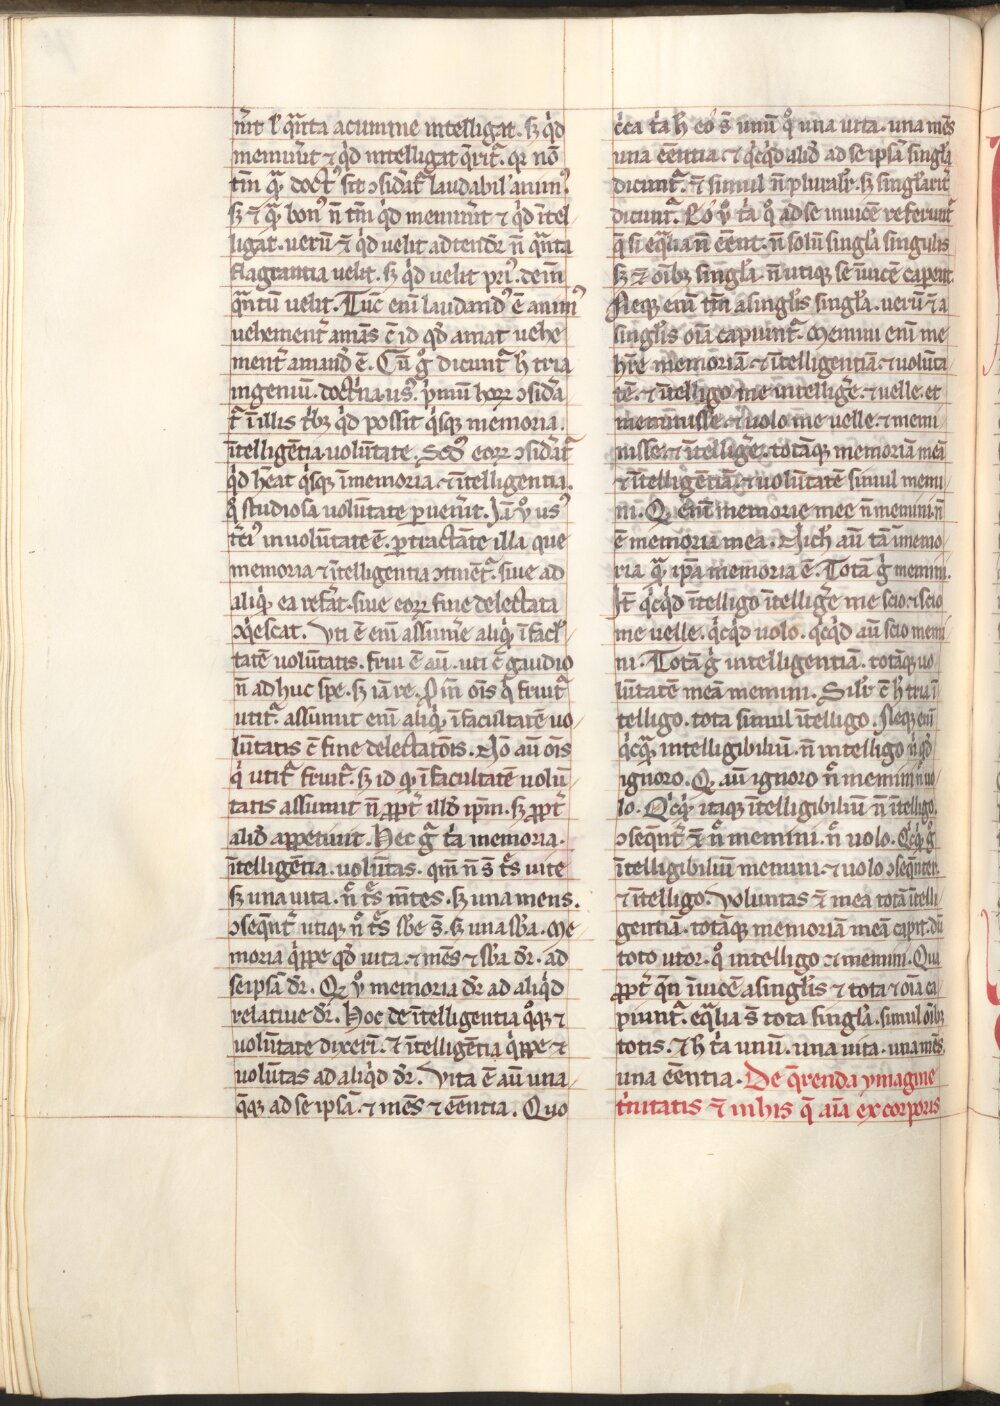 nrit l' q̄nta acumine intelligat. sꝫ qͥd
meminͥit ⁊ qͥd intelligat q̄rit᷑. qꝛ nō
tm̄ qͣꝫ doctꝰ sit ↄsidāt᷑ laudabil' animꝰ.
sꝫ ⁊ qͣꝫ bonꝰ n̄ tm̄ qͥd meminͥit ⁊ qͥd ītel
ligat. uerū ⁊ qͥd uelit adtendr̄ n̄ qͣnta
flagrantia uelit. sꝫ qͥd uelit priꝰ. dein̄
qͣntū uelit. Tūc eni laudandꝰ ē animꝰ
uehement᷑ amās c̄ id qd̓ amat uehe
ment᷑ amand̓ ē. Cū gͦ dicunt᷑ h̄ tria
ingeniū. doctͥna. usꝰ. pͥmū hoꝝ ↄsidā
t᷑ ī illis tͥbꝫ qͥd possit qͥsqꝫ memoria.
ītelligētia uolūtate. Sed̓ꝰ eoꝝ ↄsidāt᷑
qͥd hēat qͥsqꝫ ī memoria. ⁊ ītelligentia.
qͦ studiosa uolūtate puenͥit. Iā u̓o usꝰ
tͥciꝰ in uolūtate ē. ꝑtractāte illa que
memoria ⁊ ītelligentia ↄtinent᷑. siue ad
aliqͥd ea refāt. siue eoꝝ fine delectata
ↄqͥescat. Vti ē eni assume̓ aliqͥd ī facl'
tatē uolūtatis. frui ē aū. uti c̄ gaudio
n̄ adhuc spe. sꝫ iā re. Proīn oīs qͥ fruit᷑
utit᷑. assumit eni aliqͥd ī facultatē uo
lūtatis c̄ fine delectatōis. Nō aū oīs
qͥ utit᷑ fruit᷑. sꝫ id qͥ ī facultatē uolū
tatis assumit n̄ ꝓpt᷑ illd̓ ipm̄. sꝫ ꝓpt᷑
aliud̓ appetiuit. Hec gͦ tͥa memoria.
ītelligētia. uolūtas. qm̄ n̄ s̄ tͤs uite
sꝫ una uita. n͛ tͤs mētes. sꝫ una mens.
ↄseqͤnt᷑ utiqꝫ n͛ tͤs sb̄e s̄. sꝫ una sb̄a. Me
moria qͥppe qd̓ uita. ⁊ mēs ⁊ sb̄a dr̄. ad
seipsā dr̄. Qd̓ u̓o memoria dr̄ ad aliqͥd
relatiue dr̄. Hoc de ītelligentia qͦqꝫ ⁊
uolūtate dixeri. ⁊ ītelligētia qͥppe ⁊
uolūtas ad aliqͥd dr̄. Vita ē aū una
q̄qꝫ ad se ipsā. ⁊ mēs ⁊ eēntia. Quo
cͥca tͥa h̄ eo s̄ unū qͦ una uita. una mēs
una eēntia. ⁊ qͥcqͥd aliud̓ ad seipsā singl'a
dicunt᷑. ⁊ simul n̄ pluralr̄. sꝫ singlarit᷑
dicunt᷑. Eo u̓o tͥa qͦ ad se inuicē referunt᷑
q̄ si eqͣlia n̄ eēnt. n̄ solū singl'a singulis
sꝫ ⁊ oībꝫ singl'a. n̄ utiqꝫ se īuicē caperent.
Neqꝫ eni tm̄ a singl'is singl'a. uerū ⁊ a
singl'is oīa capiunt᷑. Memini eni me
hr̄e memoriā. ⁊ ītelligentiā. ⁊ uolūta
tē. ⁊ ītelligo me intellige̓. ⁊ uelle. et
meminisse. ⁊ uolo me uelle. ⁊ memi
nisse. ⁊ ītellige̓. totāqꝫ memoriā meā
⁊ ītelligētiā. ⁊ uolūtatē simul memi
ni. Qd̓ eni memorie mee n̄ memini. n̄
ē memoria mea. Nichil aū tā ī memo
ria qͣꝫ ipa memoria ē. Totā gͦ memini.
It̄ qͥcqͥd ītelligo ītellige̓ me scio. ⁊ scio
me uelle. qͥcqͥd uolo. qͥcqͥd aū scio memi
ni. Totā gͦ intelligentiā. totāqꝫ uo
lūtatē meā memini. Silr̄ c̄ h̄ tria ī
telligo. tota simul ītelligo. Neqꝫ eni
qͥcqͣꝫ intelligibiliū. n̄ intelligo n̄ qd̓
ignoro. Qd̓ aū ignoro n͛ memini n̄ uo
lo. Qͥcqͥd itaqꝫ ītelligibiliū n̄ ītelligo.
ↄseqͤnt᷑ ⁊ n͛ memini. n͛ uolo. Qͥcqͥd gͦ
ītelligibiliū memini. ⁊ uolo ↄseqͤnter
⁊ ītelligo. Voluntas ⁊ mea totā ītelli
gentiā. totāqꝫ memoriā meā capit. dū
toto utor. qͦ intelligo ⁊ memini. Qua
ꝓpt᷑ qn̄ īuicē a singl'is ⁊ tota ⁊ oīa ca
piunt᷑. eqͣlia s̄ tota singl'a. simul oībꝫ
totis. ⁊ h̄ tͥa unū. una uita. una mēs.
una eēntia. De q̄renda ymagine
tͥnitatis ⁊ in his q̄ aīa ex corporis